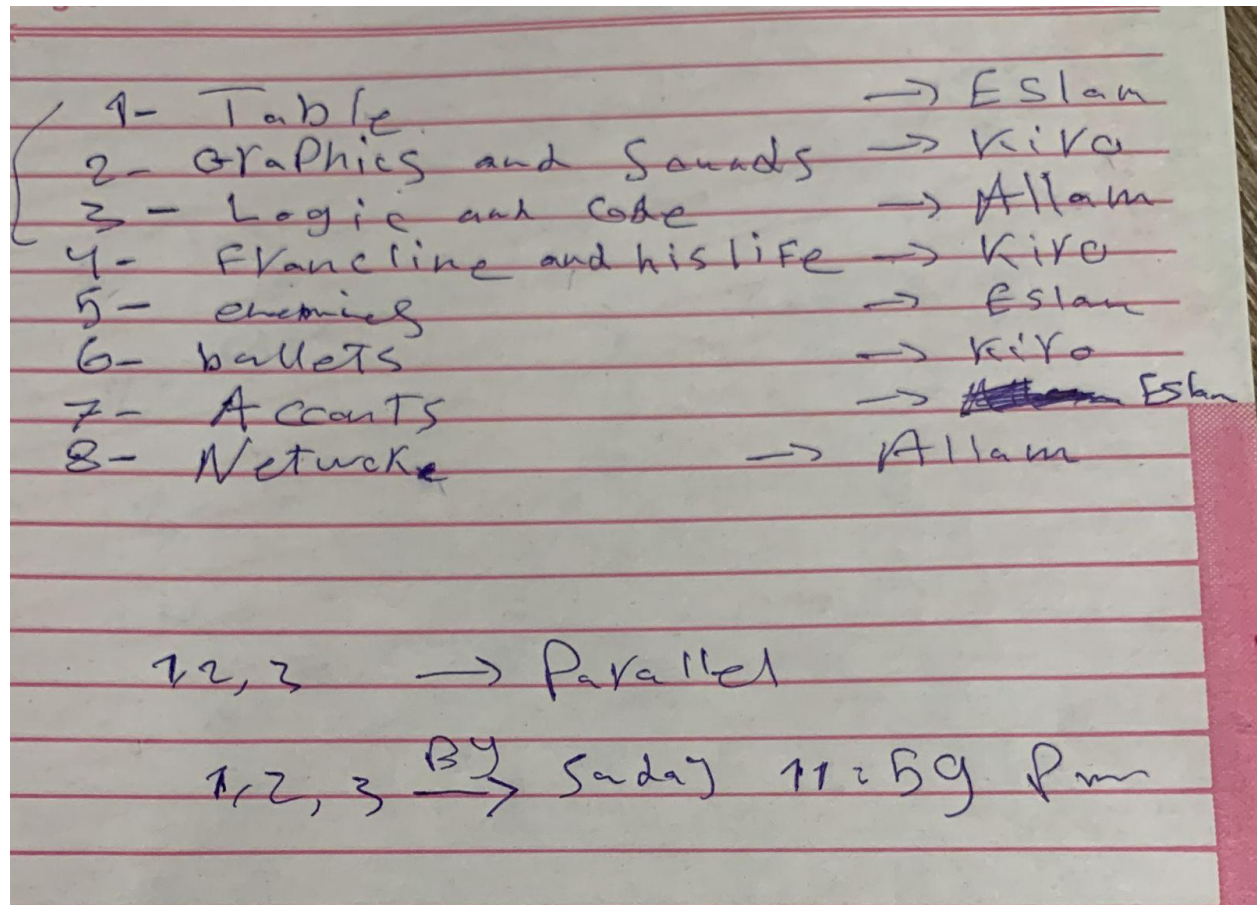 1- Table → Eslam
2- Graphics and Sounds → Kiro
3- Logic and Code → Allam
4- Francline and his life → Kiro
5- enemies → Eslam
6- bullets → Kiro
7- Accounts → Eslam
8- Network → Allam
1 2, 3 → Parallel
1, 2, 3 By → Sunday 11:59 Pm